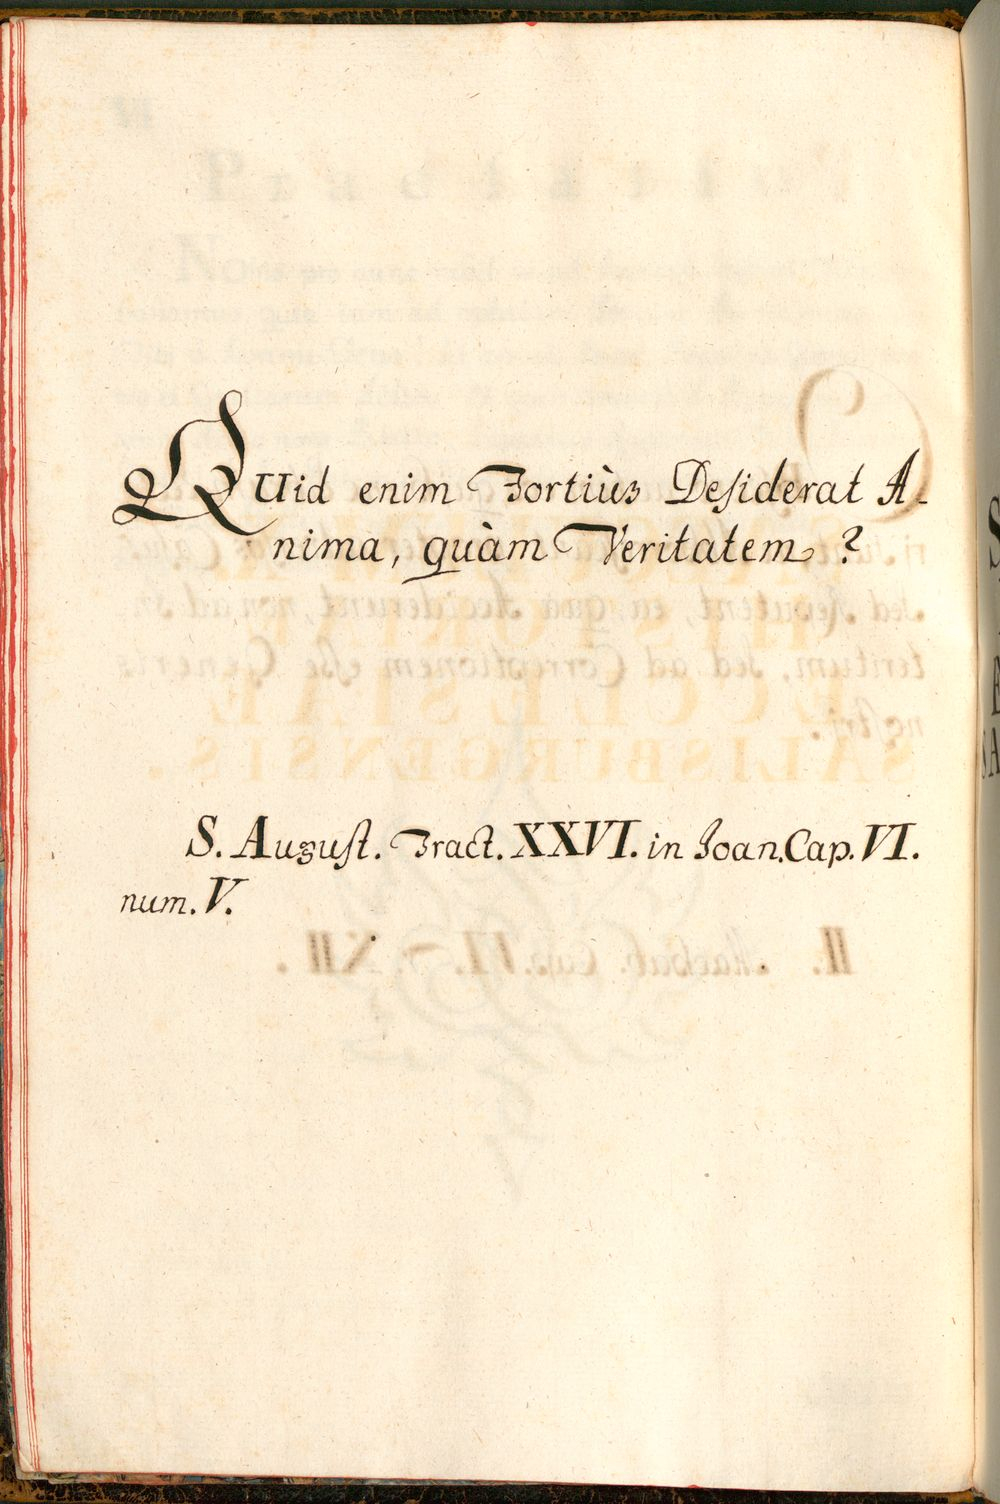 QUid enim Fortiùs Deſiderat A-
nima, quàm Veritatem?
S. Auguſt. Tract. XXVI. in Joan. Cap. VI.
num. V.